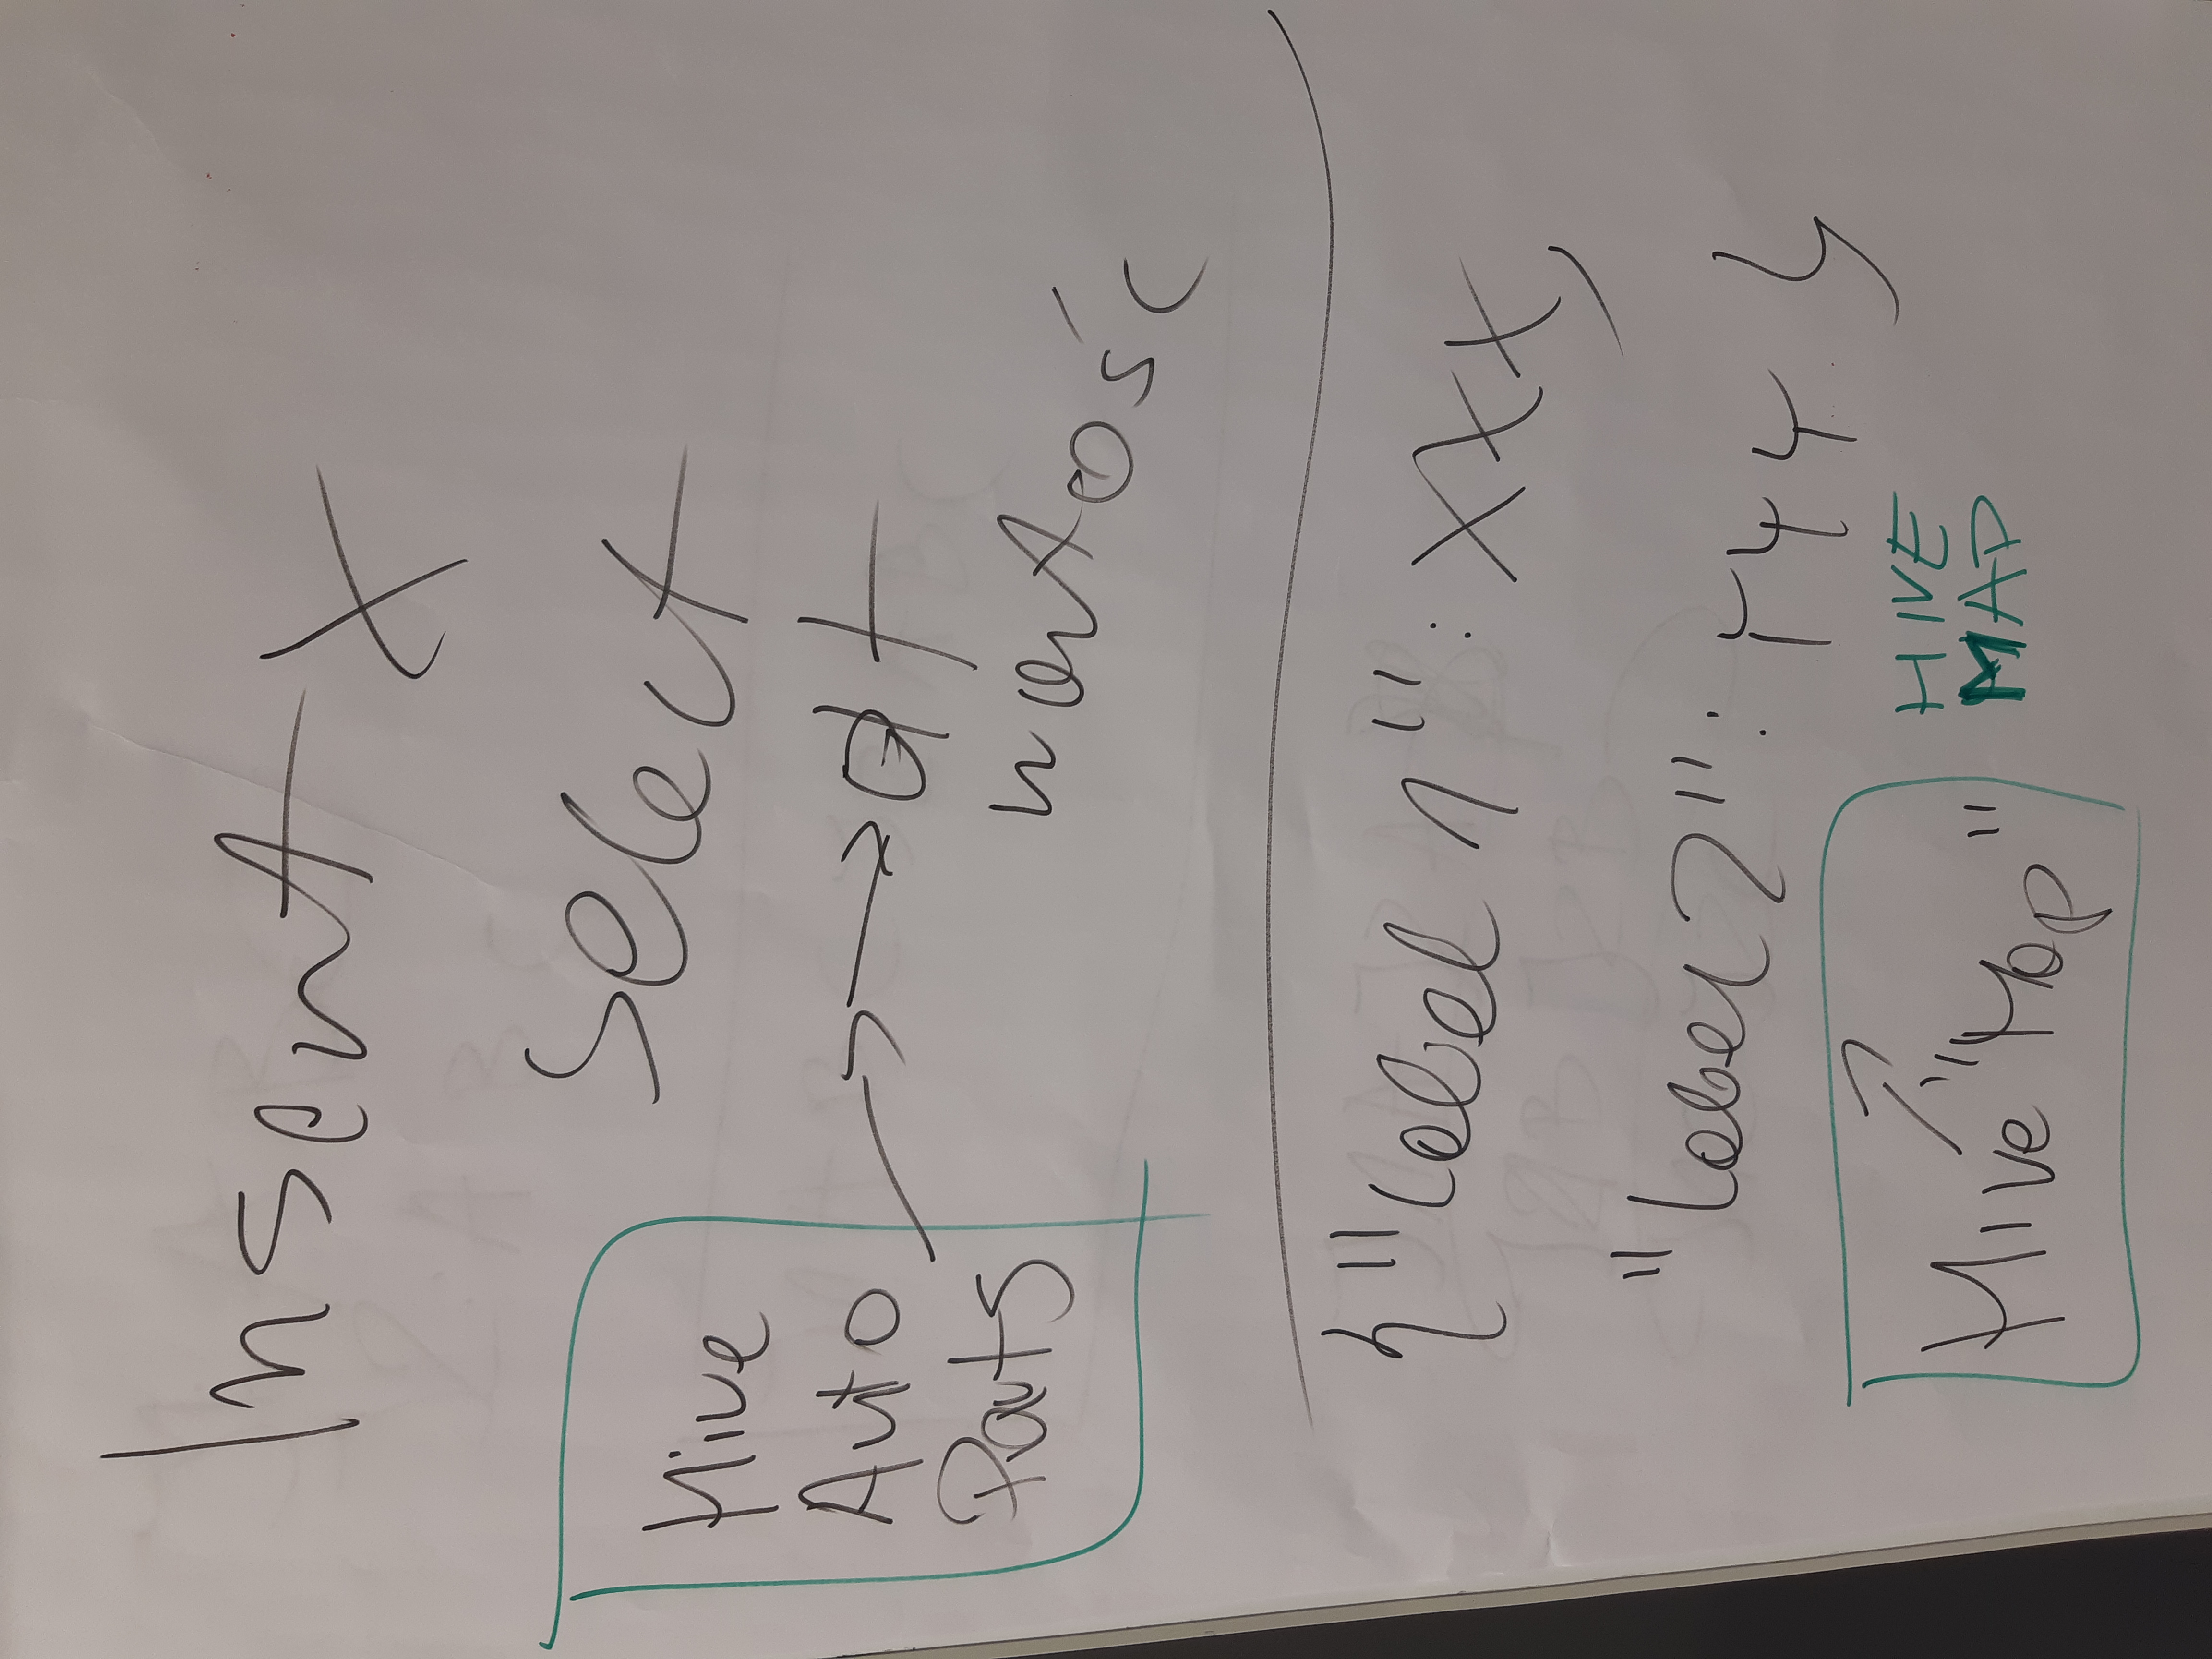 Insert X
Select
Hive
Auto
Parts
dt
wartość
{"label 1": XXX,
"label 2": YYY}
Hive "Map"
HIVE
MAP